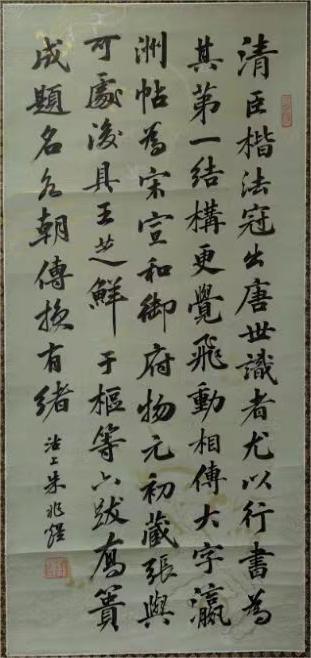 清臣楷法冠出唐世識者尤以行書為
其第一結構更覺飛動相傳大字瀛
洲帖為宋宣和御府物元初藏張與
可處後具王芝鮮于樞等六跋喬簣
成題名各朝傳有緒 上朱兆